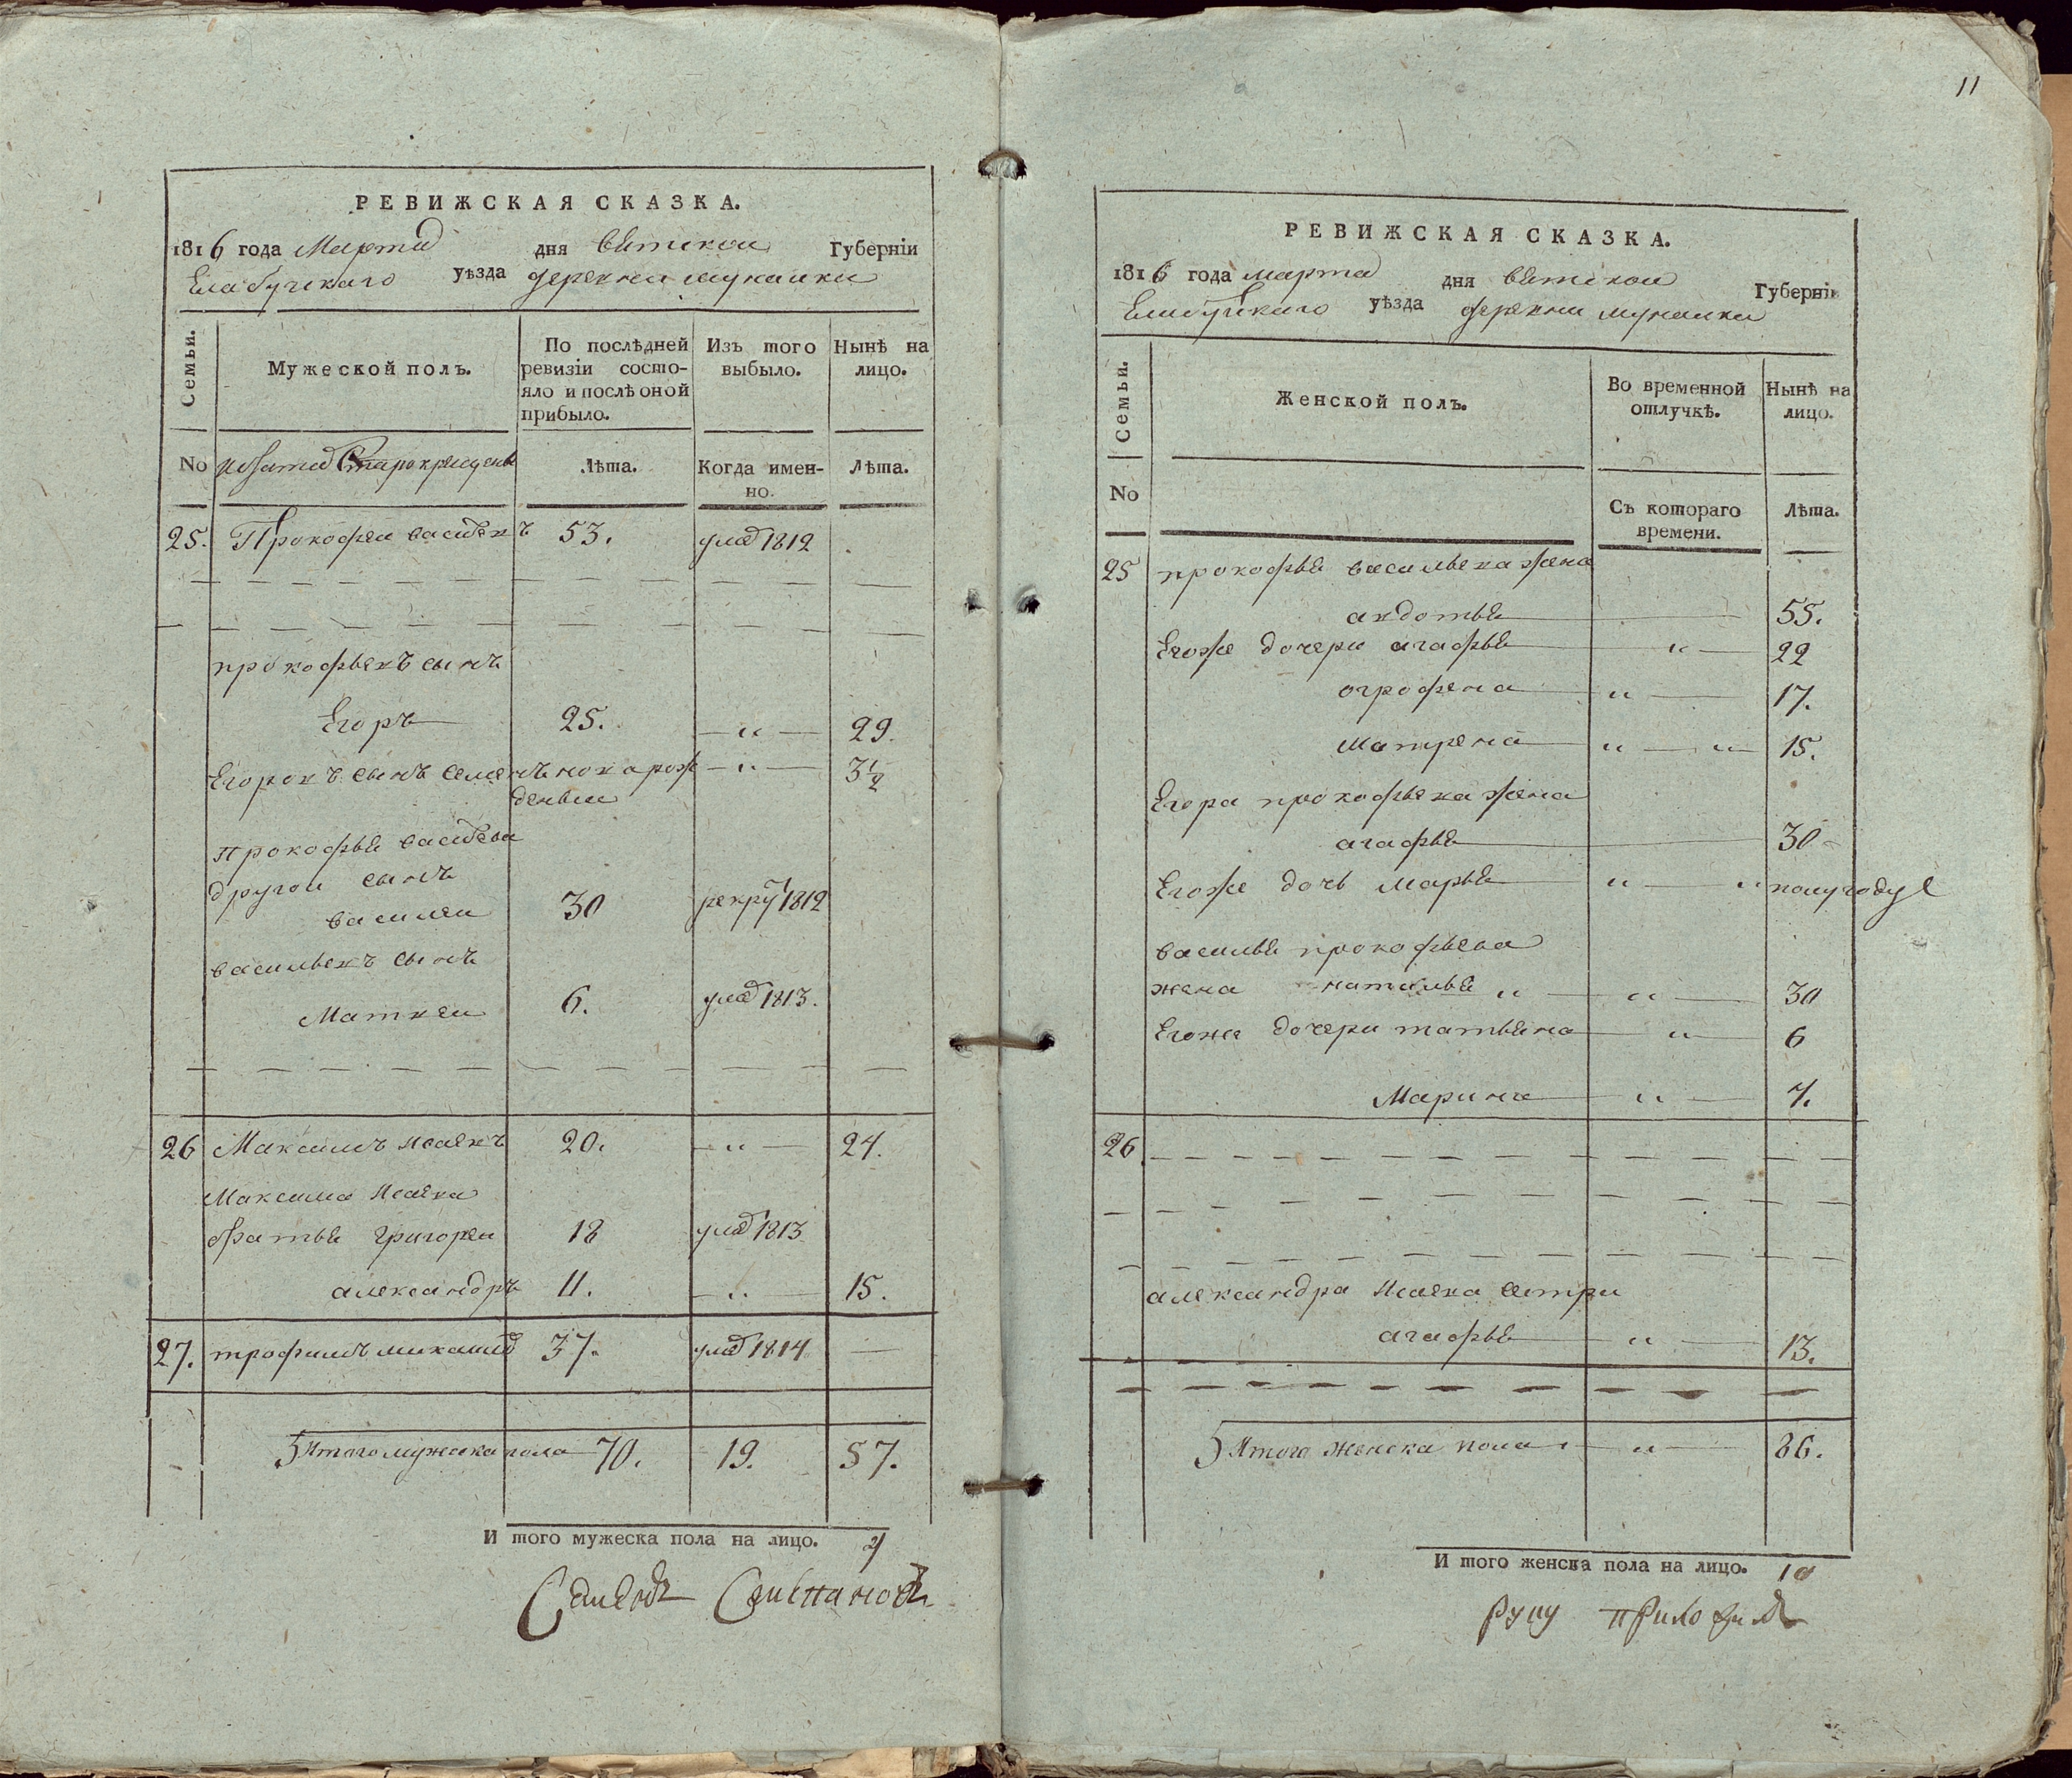 РЕВИЖСКАЯ СКАЗКА.
1816 года Марта дня вятской Губерніи
Елабугскаго уѣзда деревни мунайки
Семьи.
Мужеской полъ.
По послѣдней ревизіи состо-
яло и послѣ оной
прибыло.
Изъ того
выбыло.
Нынѣ на
лицо.
No
старокрещены
Лѣта.
Когда имен-
но.
Лѣта.
25. Прокофеи васильевъ 53. умеръ 1812
прокофьевъ сынъ
Егоръ 25. — „ — 29.
Егоровъ сынъ семенъ новарож — „ — 3 1/2
денные
прокофья васильева
другои сынъ
василеи 30 рекрут 1812
васильевъ сынъ
Матвеи 6. умеръ 1813.
26 Максимъ исаевъ 20. — „ — 24.
Максима Исаева
братья григореи 18 умеръ 1813
александръ 11. — „ — 15.
27. трофимъ 37. умеръ 1814 —
Итого мужеска пола 70. 19. 57.
И того мужеска пола на лицо.
Семенъ
11
РЕВИЖСКАЯ СКАЗКА.
1816 года марта дня вятской Губерніи
Елабугскаго уѣзда деревни мунайки
Семьи.
Женской полъ.
Во временной
отлучкѣ.
Нынѣ на
лицо.
No
Съ котораго
времени.
Лѣта.
25 прокофья васильева жена
авдотья 55.
Егоже дочери агафья „ — 22
огрофена „ — 17.
Матрена „ — „ — 15.
Егора прокофьева жена
агафья 30
Егоже дочь Марья „ — „ полугоду
василья прокофьева
жена наталья „ — „ — 30
Егоже дочери татьяна „ — 6
Марина — „ — 7.
26.
александра Исаева сестра
агафья „ — 13.
Итого женска пола — „ — 86.
И того женска пола на лицо. 10
руку приложилъ